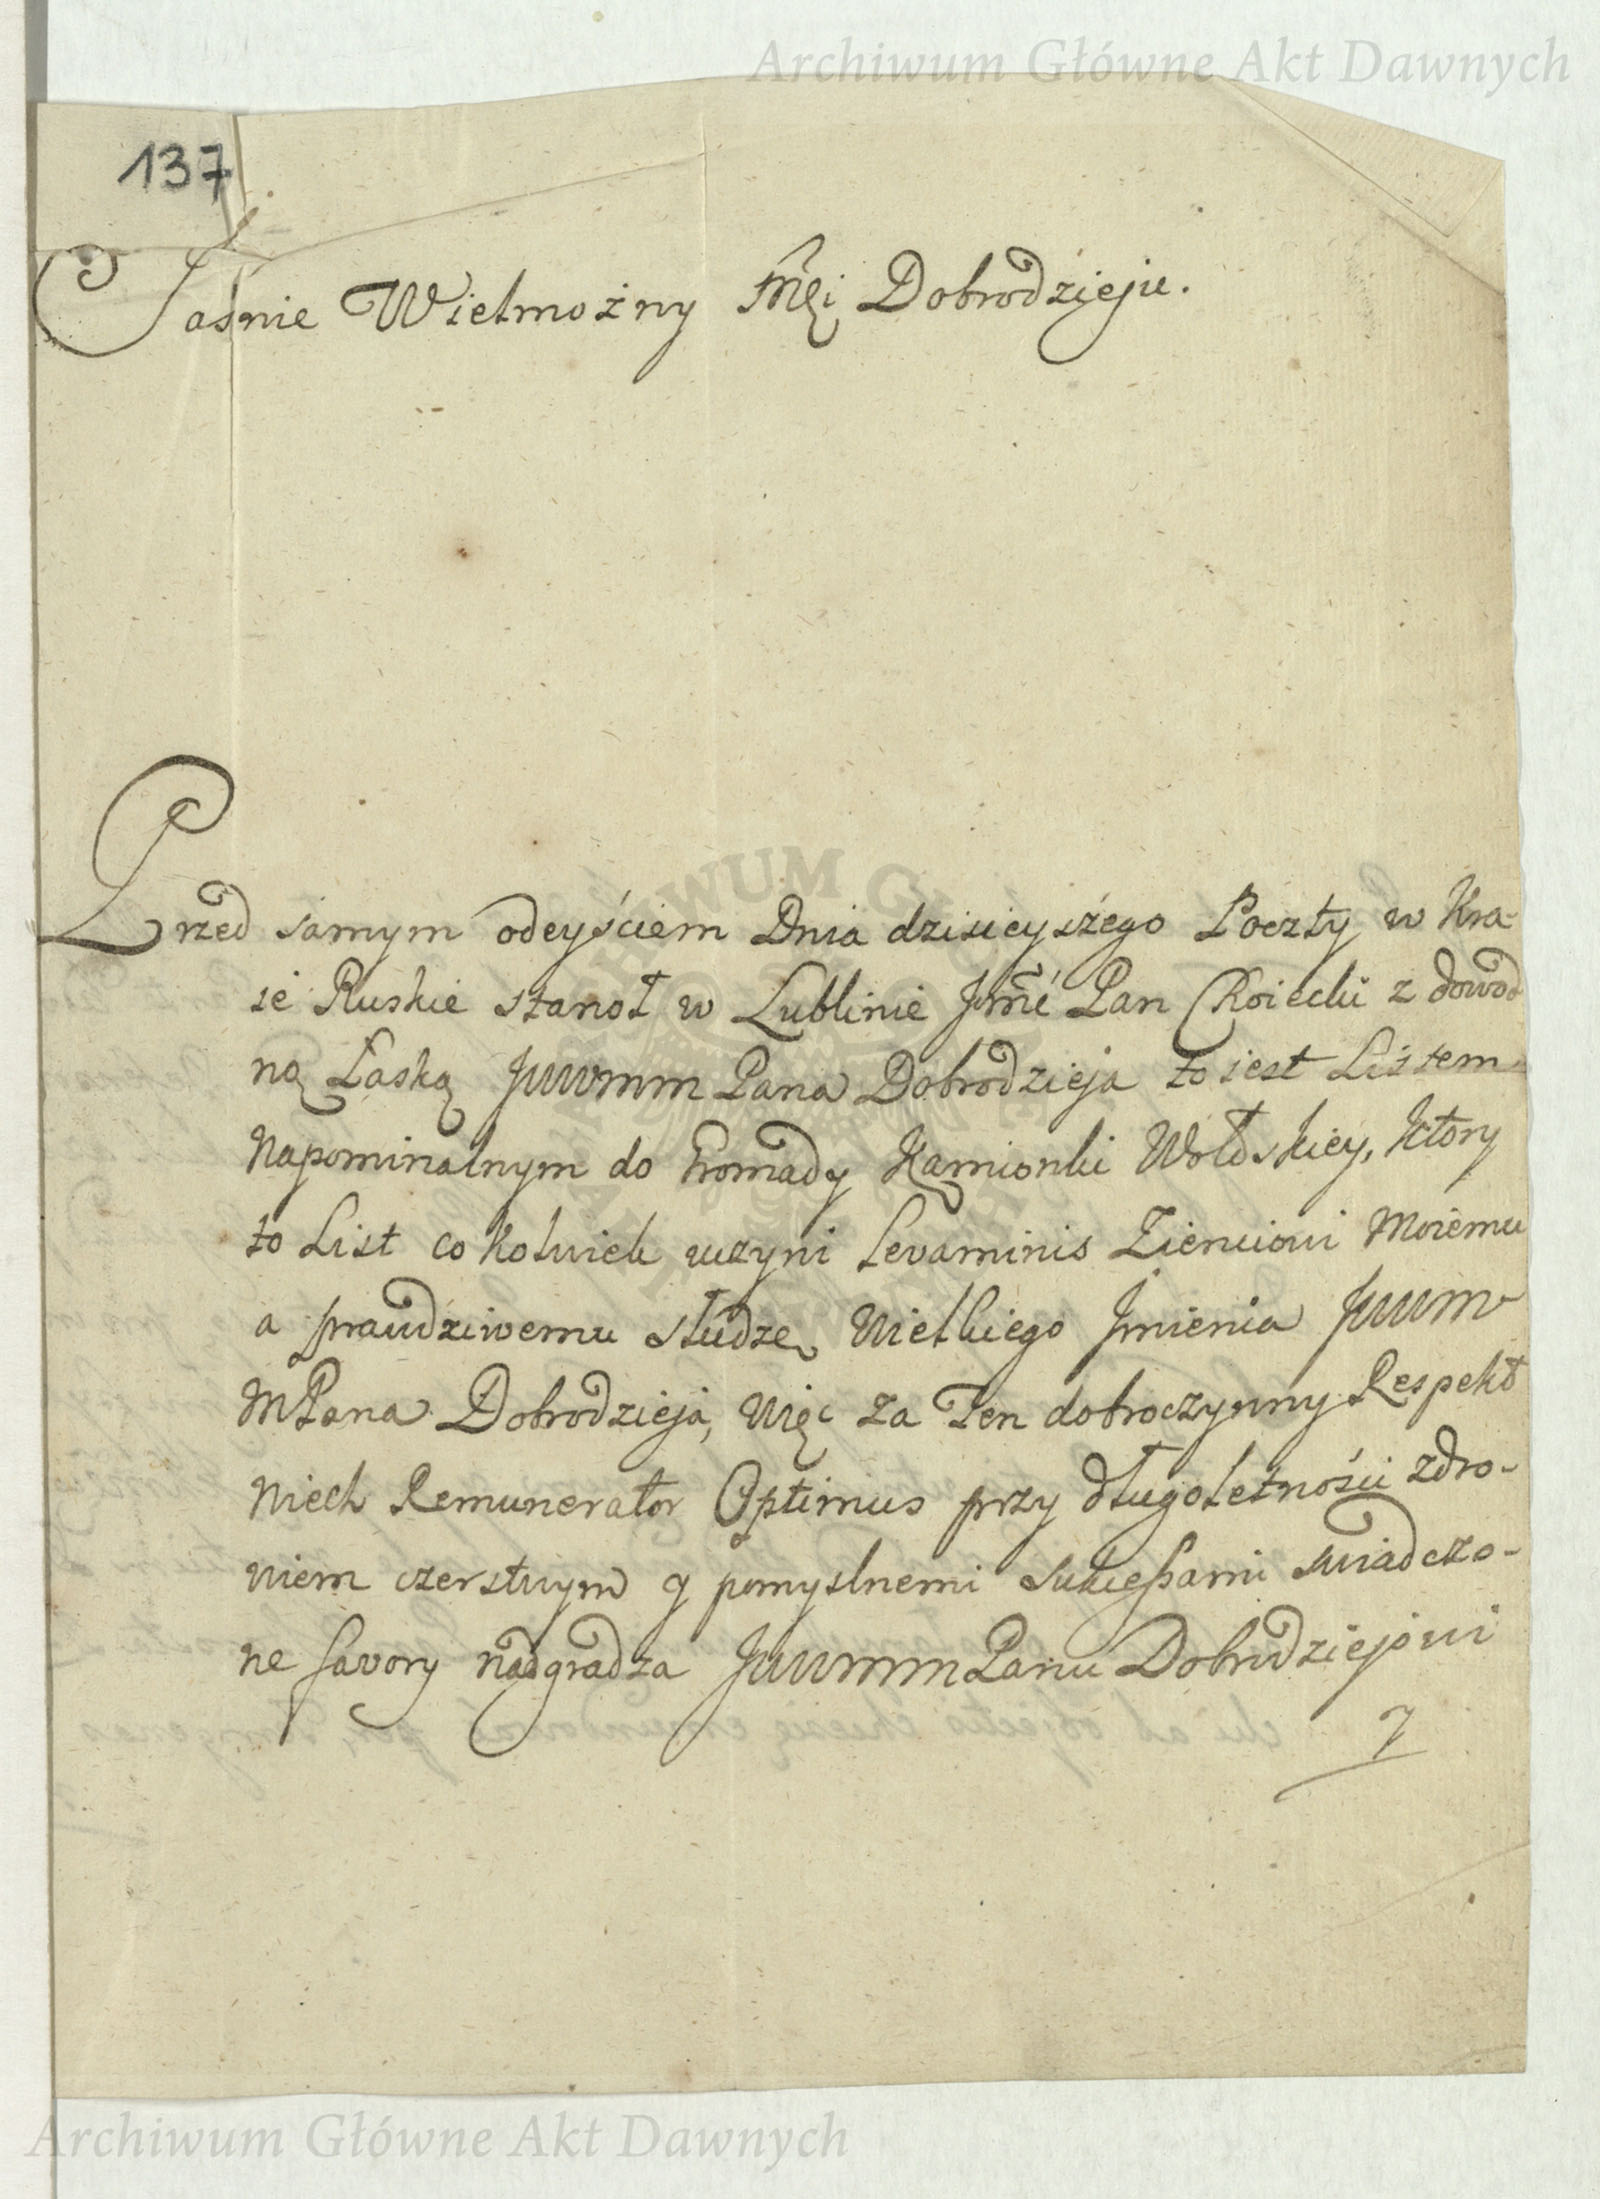 Archiwum Główne Akt Dawnych
137
Jasnie Wielmożny Mći Dobrodzieju.
Przed samym odeyściem Dnia dzisieyszego Poczty w Kra-
ie Ruskie stanoł w Lublinie Jmć Pan Choiecki z dowod
ną Łaską JWWMM Pana Dobrodzieja to iest Listem
Napominalnym do Hromady Kamionki Wołoskiey, ktory
to List cokolwiek uczyni levaminis Zięciowi Moiemu
a prawdziwemu słudze Wielkiego Jmienia JWWM
MPana Dobrodzieja, Więc za Ten dobroczynny Respekt
Niech Remunerator Optimus przy długoletności zdro-
wiem czerstwym y pomyslnemi sukcessami swiadczo-
ne favory nadgradza JWWMM Panu Dobrodziejowi
Archiwum Główne Akt Dawnych